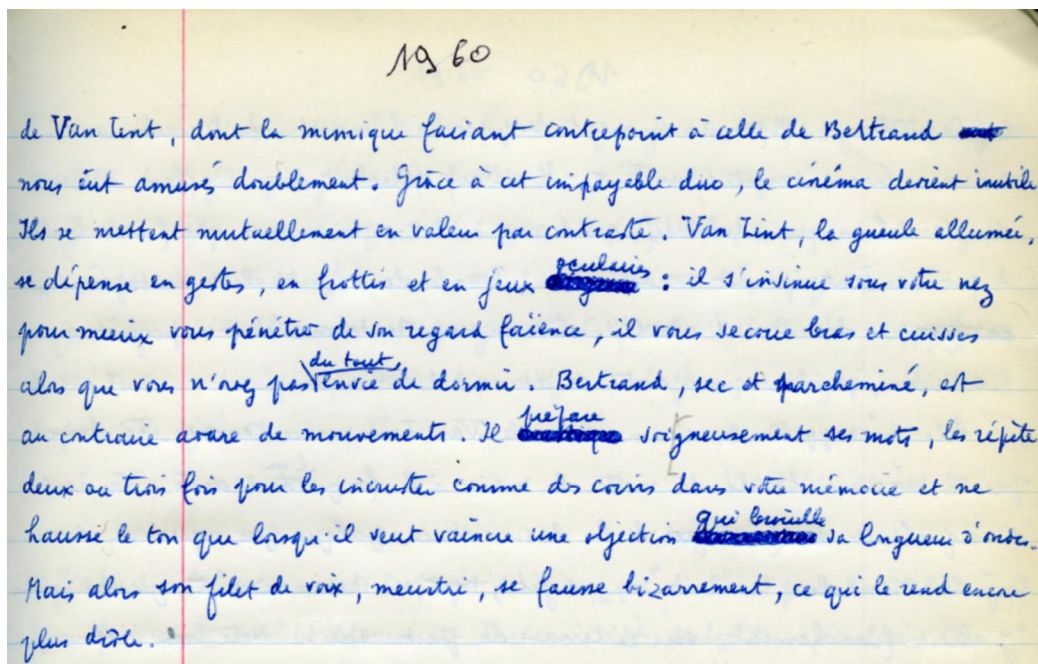 1960
de Van Lint, dont la mimique faisant contrepoint à celle de Bertrand
nous eut amusés doublement. Grâce à cet impayable duo, le cinéma devient inutile
Ils se mettent mutuellement en valeur par contraste. Van Lint, la gueule allumée,
se dépense en gestes, en frottis et en jeux oculaires : il s'insinue sous votre nez
pour mieux vous pénétrer de son regard faïence, il vous secoue bras et cuisses
alors que vous n'avez pas du tout envie de dormir. Bertrand, sec et parcheminé, est
au contraire avare de mouvements. Il prépare soigneusement ses mots, les répète
deux ou trois fois pour les incruster comme des coins dans votre mémoire et ne
hausse le ton que lorsqu'il veut vaincre une objection qui brouille sa longueur d'ondes.
Mais alors son filet de voix, meurtri, se fausse bizarrement, ce qui le rend encore
plus drôle.